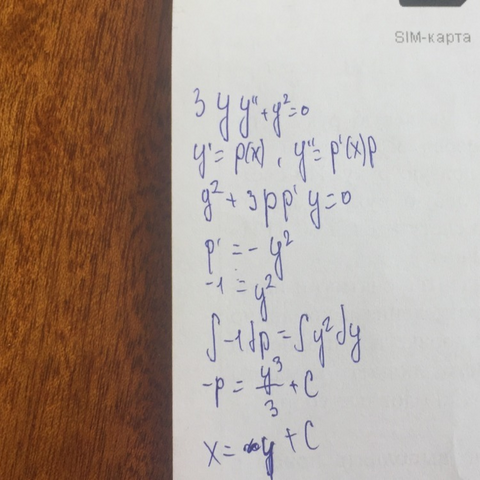 SIM-карта
3 y y'' + y² = 0
y' = p(x), y'' = p'(x)p
y² + 3pp' y = 0
p' = - y²
-1 = y²
∫ -1 dp = ∫ y² dy
-p = y³/3 + C
x = y + C